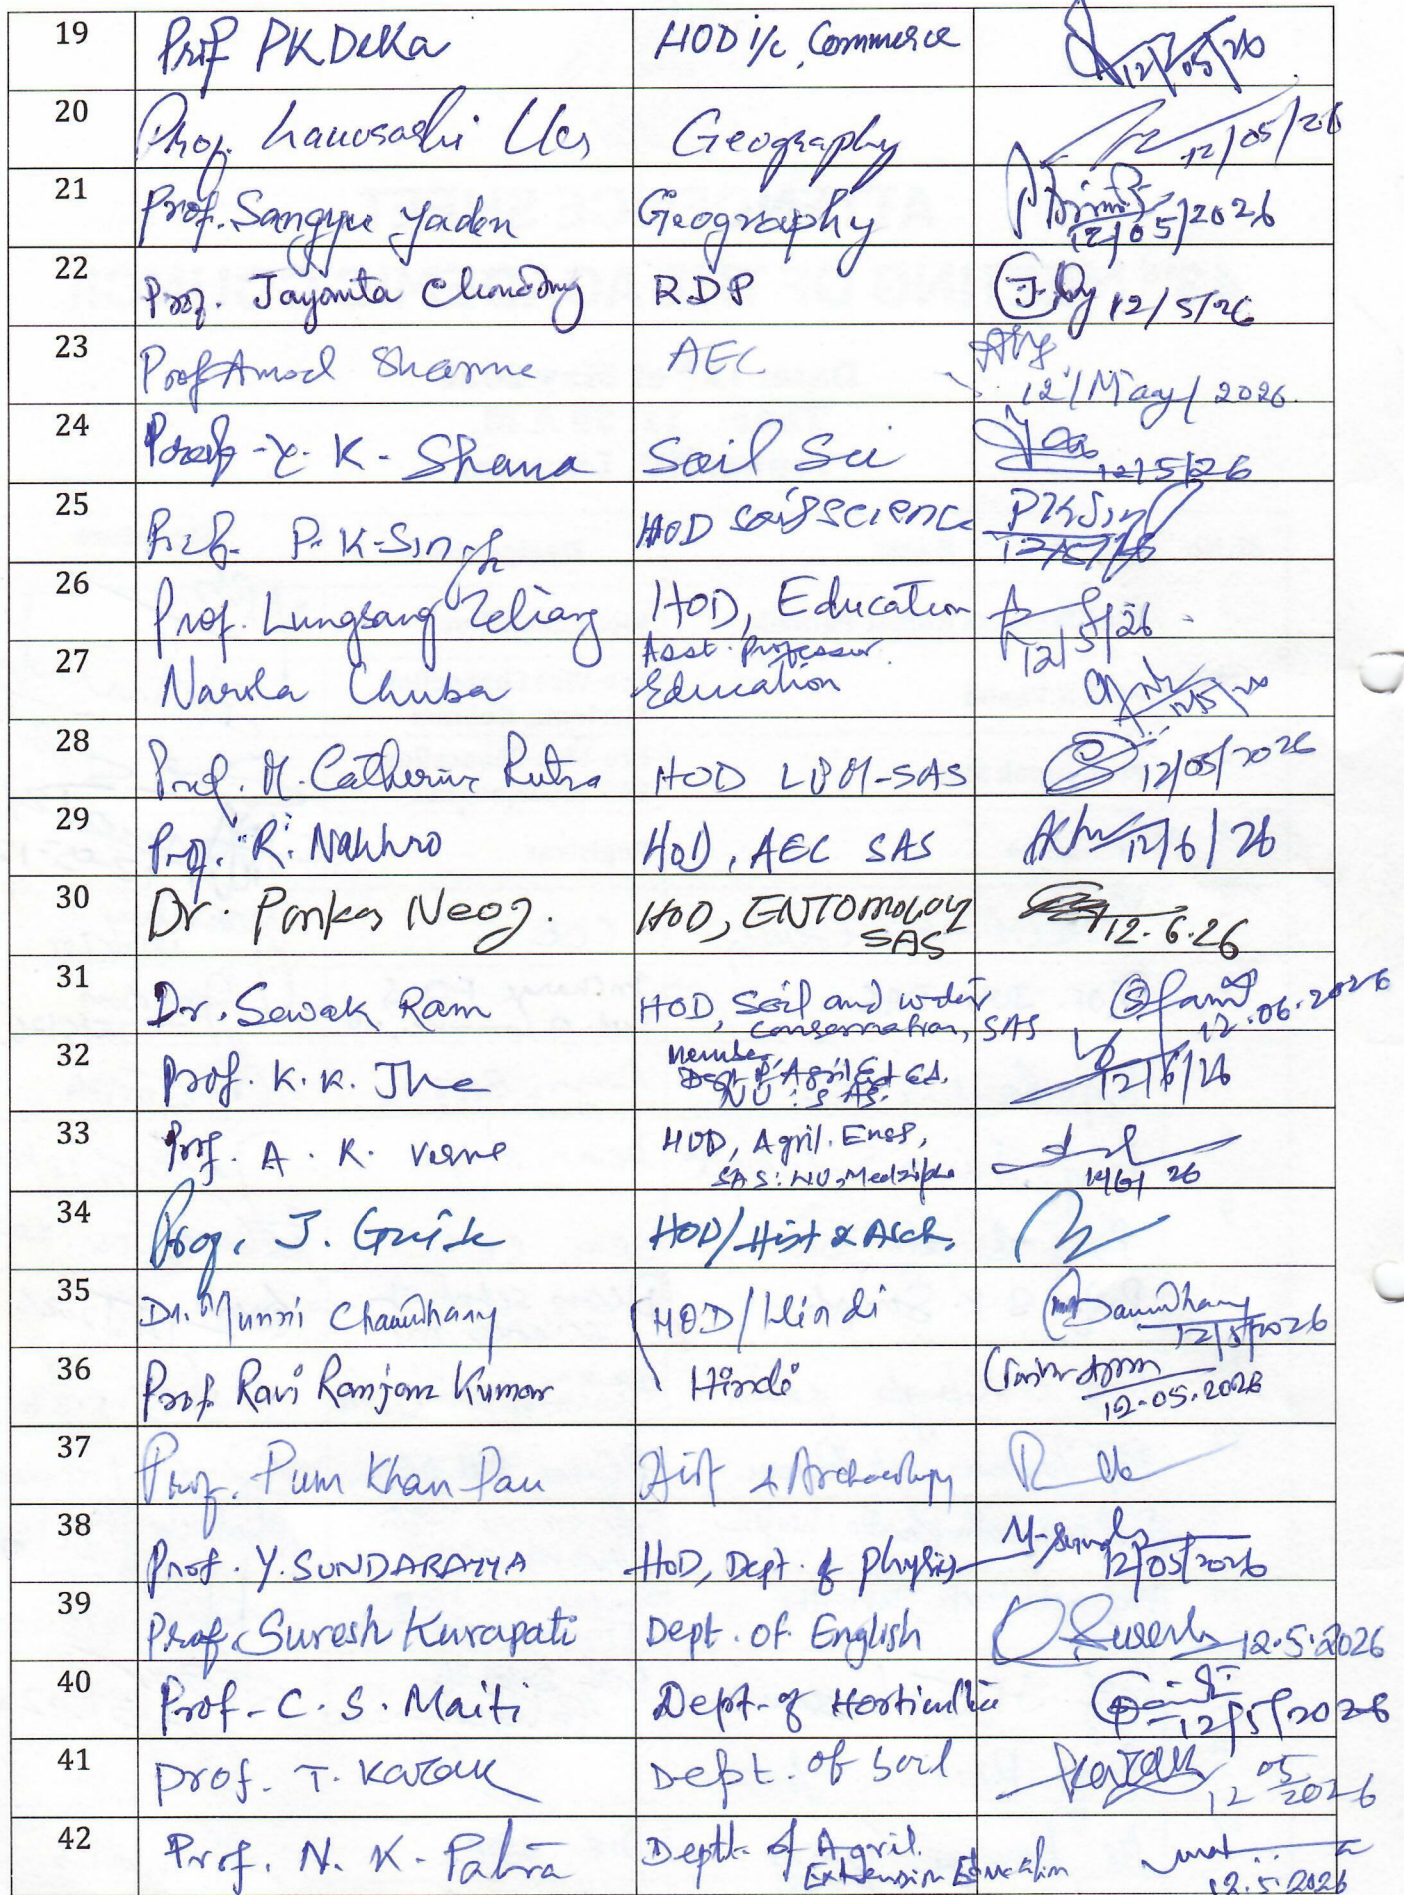 19 Prof PK Deka HOD i/c, Commerce 12/05/26
20 Prof. Lanusashi Lkr Geography 12/05/26
21 Prof. Sangyu Yaden Geography 12/05/2026
22 Prof. Jayanta Choudhury RDP 12/5/26
23 Prof Amod Sharma AEC 12/May/2026
24 Prof - Y. K. Sharma Soil Sci 12/5/26
25 Prof. P. K. Singh HOD Soil Science PKSingh
26 Prof. Lungsang Zeliang HOD, Education 12/5/26
27 Narola Chuba Asst. Professor
Education
28 Prof. M. Catherine Rutsa HOD LPM-SAS 12/05/2026
29 Prof. R. Nakhro HoD, AEC SAS 12/6/26
30 Dr. Pankaj Neog. HOD, ENTOMOLOGY
SAS 12.6.26
31 Dr. Sewak Ram HOD, Soil and water
conservation, SAS 12.06.2026
32 Prof. K. K. Jha Member,
Dept of Agril Ext Ed.
NU : SAS. 12/6/26
33 Prof. A. K. Verma HOD, Agril. Engg,
SAS: NU, Medziphema
34 Prof. J. HOD/Hist & Arch.
35 Dr. Munni Chaudhary HOD/Hindi 12/5/2026
36 Prof. Ravi Ranjan Kumar Hindi 12.05.2026
37 Prof. Pum Khan Pau Hist & Archaeology
38 Prof. Y. SUNDARAYYA HoD, Dept. of Physics 12/05/2026
39 Prof. Suresh Kurapati Dept. of English Suresh 12.5.2026
40 Prof - C. S. Maiti Dept. of Horticulture 12/5/2026
41 Prof. T. Karak Dept. of Soil TKarak 12 05 2026
42 Prof. N. K. Patra Deptt. of Agril.
Extension Education 12.5.2026